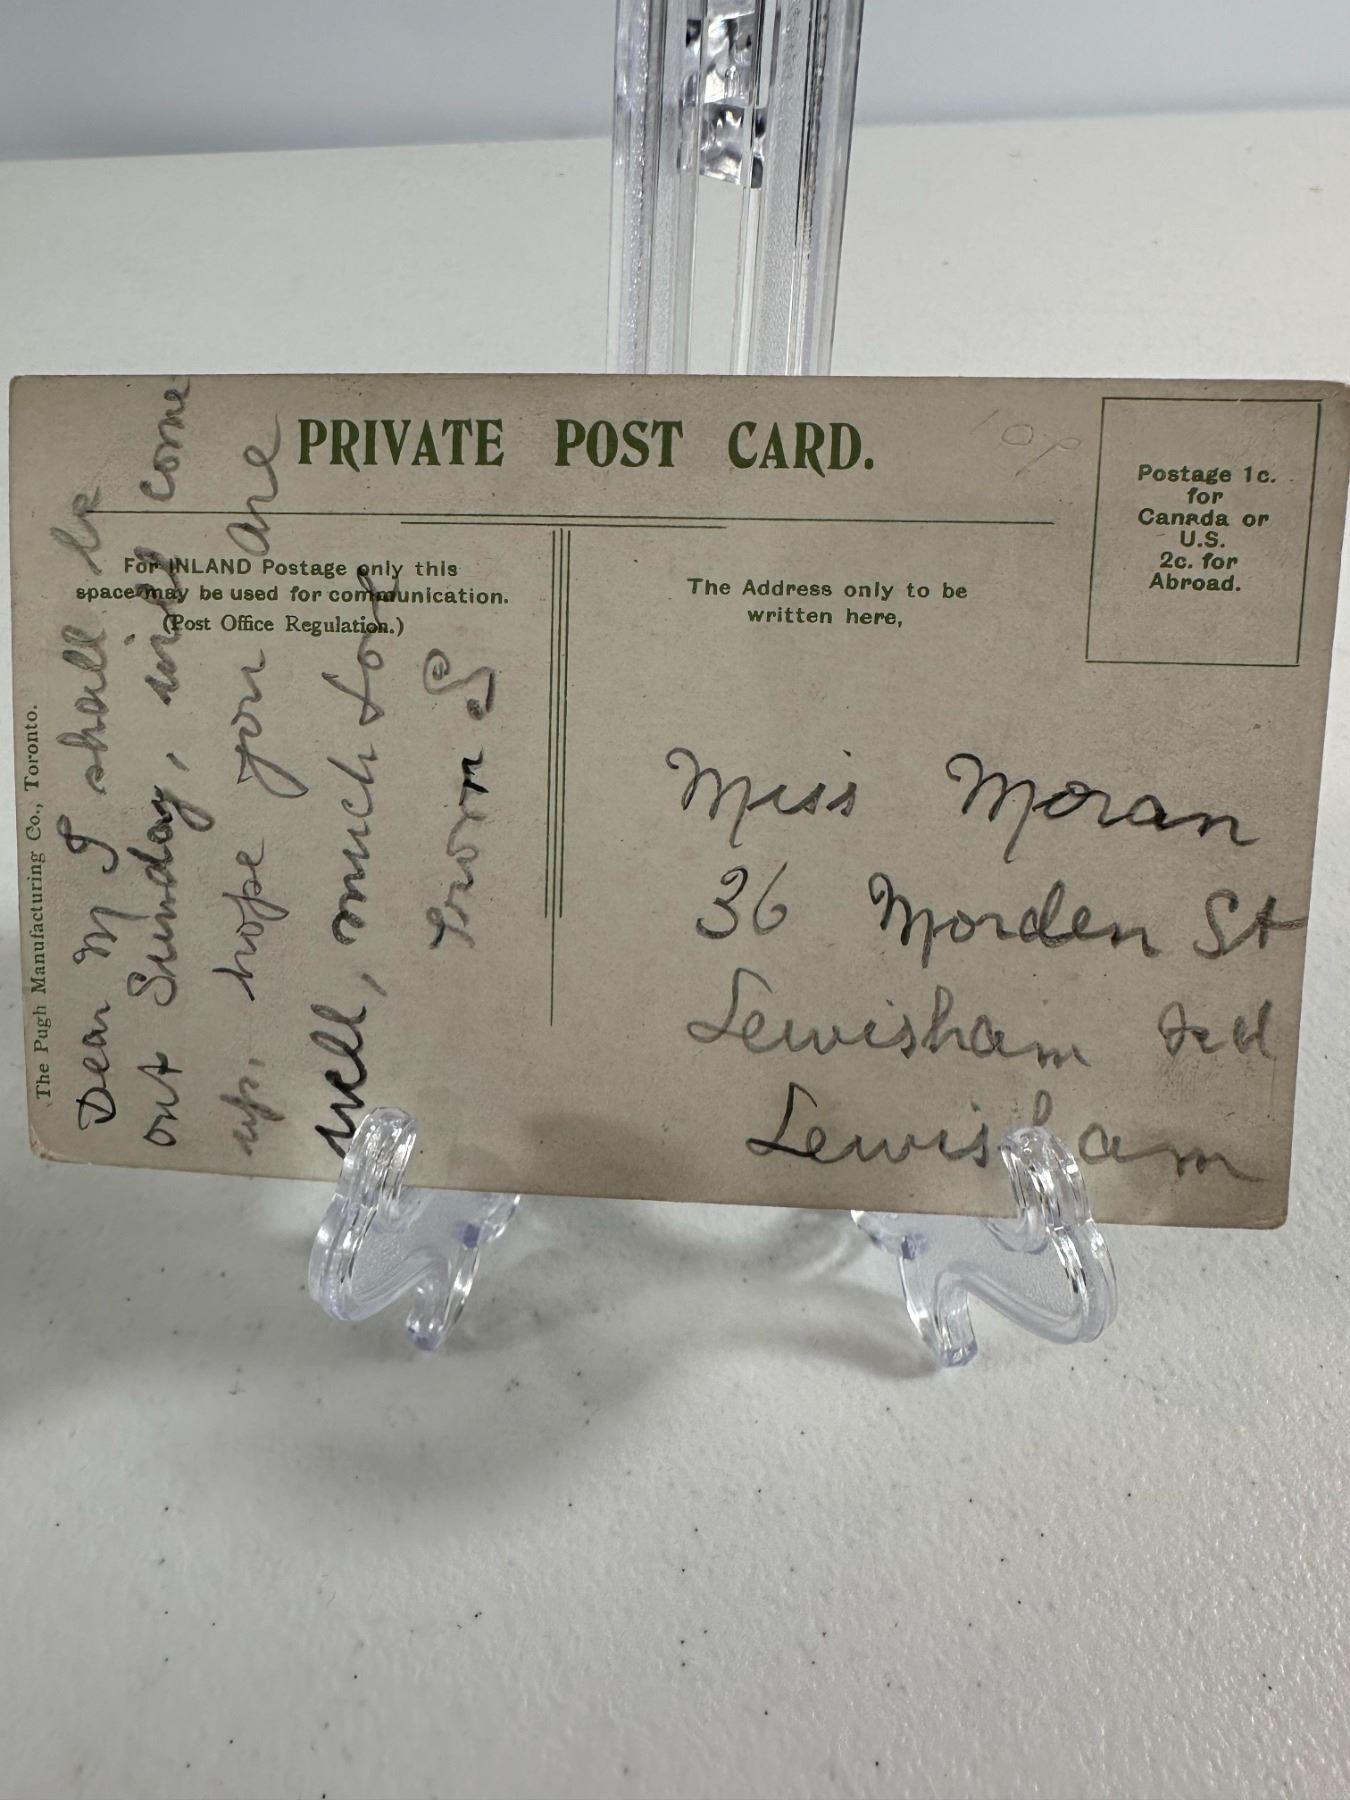 PRIVATE POST CARD.
10p
Postage 1c.
for
Canada or
U.S.
2c. for
Abroad.
For INLAND Postage only this
space may be used for communication.
(Post Office Regulation.)
The Address only to be
written here,
The Pugh Manufacturing Co., Toronto.
Dear M I shall be
out Sunday, will come
up, hope you are
well, much love
from S
Miss Moran
36 Morden St
Lewisham Rd
Lewisham